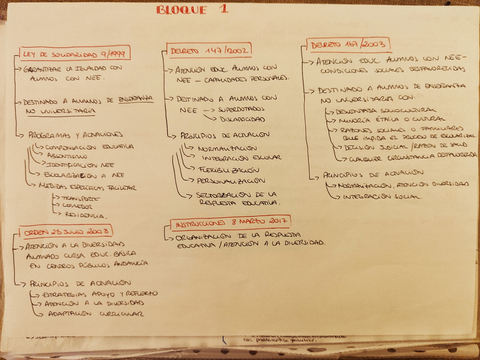 BLOQUE 1
LEY DE SOLIDARIDAD 9/1999
GARANTIZAR LA IGUALDAD CON
ALUMNOS CON NEE.
DESTINADO A ALUMNOS DE ENSEÑANZA
NO UNIVERSITARIA
PROGRAMAS Y ACTUACIONES
COMPENSACIÓN EDUCATIVA
ABSENTISMO
IDENTIFICACIÓN NEE
ESCOLARIZACIÓN A NEE
MEDIDAS ESPECIALES, FACILITAR
TRANSPORTE
COMEDOR
RESIDENCIA.
DECRETO 147/2002
ATENCIÓN EDUC. ALUMNOS CON
NEE - CAPACIDADES PERSONALES.
DESTINADO A ALUMNOS CON
NEE - SUPERDOTADOS
DISCAPACIDAD
PRINCIPIOS DE ACTUACIÓN
NORMALIZACIÓN
INTEGRACIÓN ESCOLAR
FLEXIBILIZACIÓN
PERSONALIZACIÓN
SECTORIZACIÓN DE LA
RESPUESTA EDUCATIVA.
DECRETO 167/2003
ATENCIÓN EDUC ALUMNOS CON NEE-
CONDICIONES SOCIALES DESFAVORECIDAS
DESTINADO A ALUMNOS DE ENSEÑANZA
NO UNIVERSITARIA CON:
DESVENTAJA SOCIOCULTURAL
MINORÍA ÉTNICA O CULTURAL
RAZONES SOCIALES O FAMILIARES
QUE IMPIDA EL PROCESO DE ESCOLARIDAD
DECISIÓN JUDICIAL / RAZÓN DE SALUD
CUALQUIER CIRCUNSTANCIA DESFAVORECIDA
PRINCIPIOS DE ACTUACIÓN
NORMALIZACIÓN, ATENCIÓN DIVERSIDAD
INTEGRACIÓN SOCIAL
ORDEN 25 JULIO 2008
ATENCIÓN A LA DIVERSIDAD
ALUMNADO CURSA EDUC. BÁSICA
EN CENTROS PÚBLICOS ANDALUCÍA
PRINCIPIOS DE ACTUACIÓN
ESTRATEGIAS APOYO Y REFUERZO
ATENCIÓN A LA DIVERSIDAD
ADAPTACIÓN CURRICULAR
INSTRUCCIONES 8 MARZO 2017
ORGANIZACIÓN DE LA RESPUESTA
EDUCATIVA / ATENCIÓN A LA DIVERSIDAD.